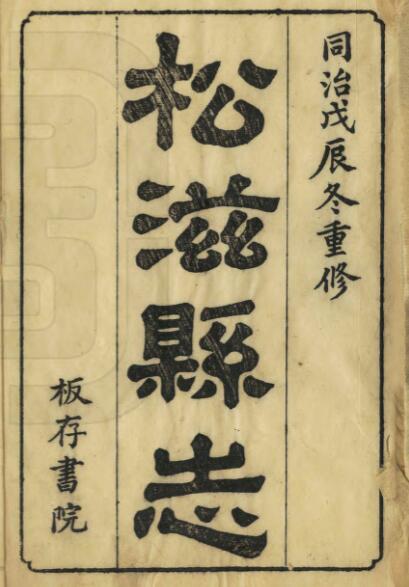 同治戊辰冬重修
松滋縣志
板存書院